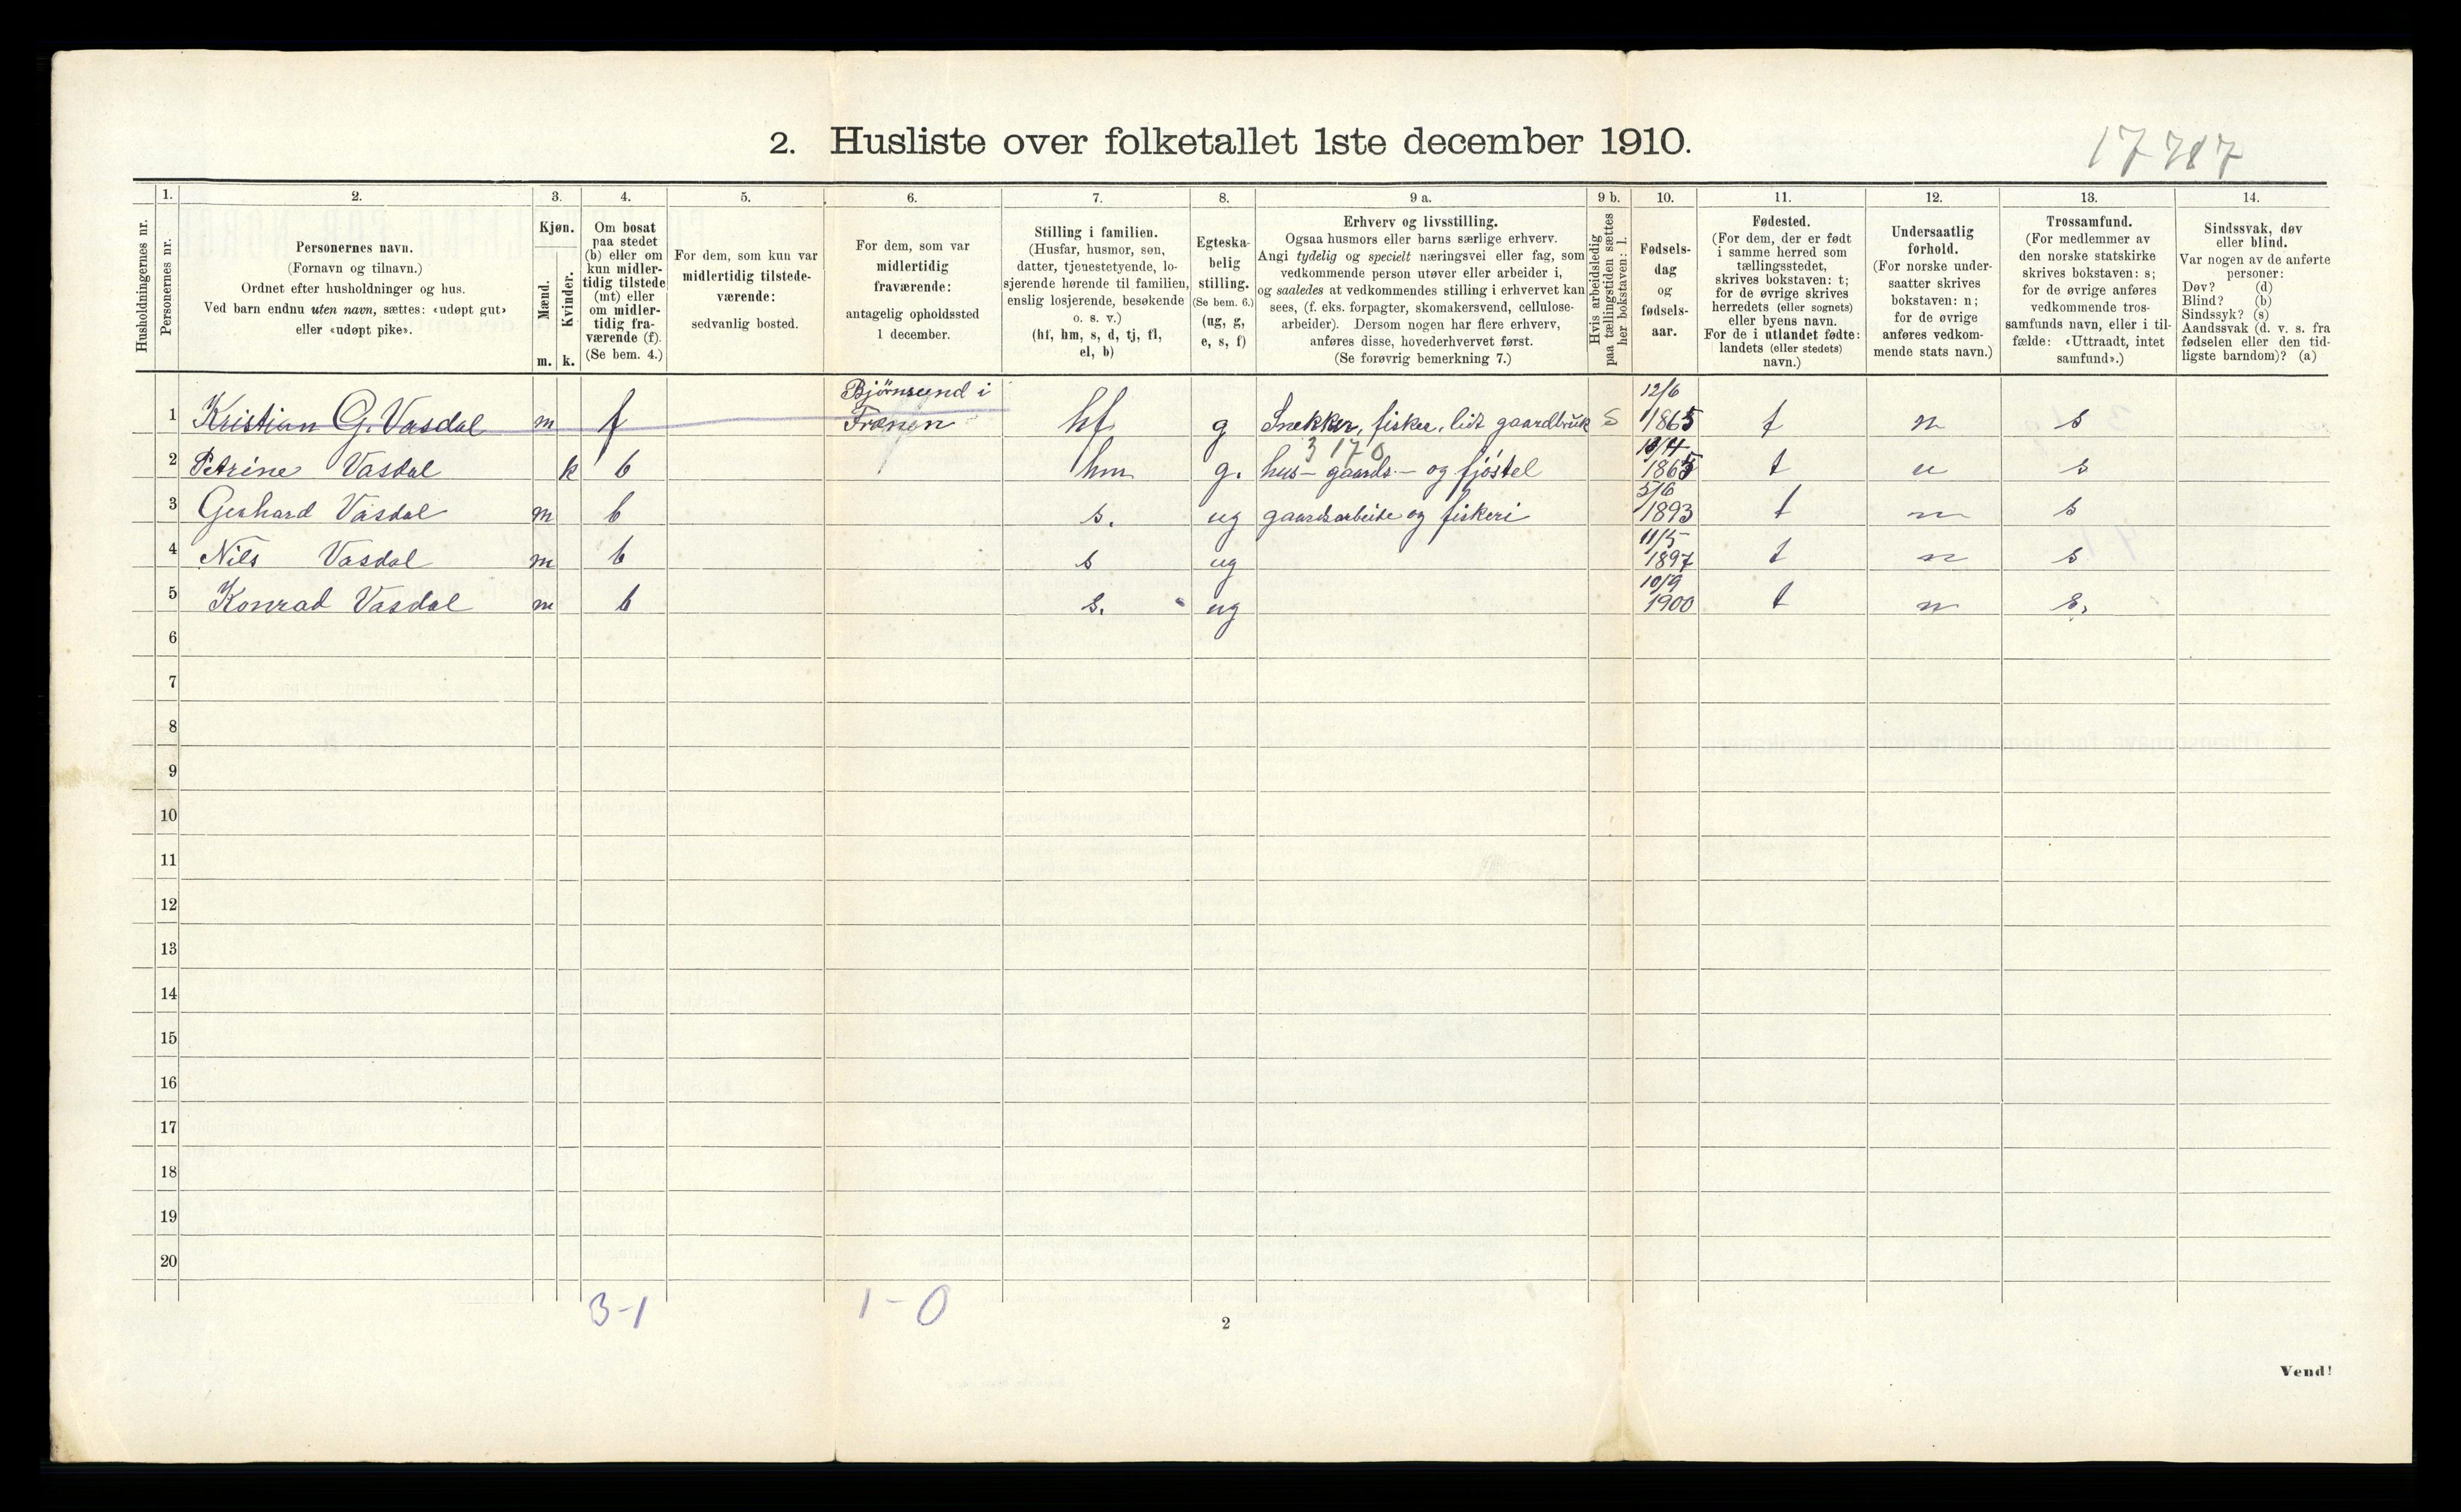 2. Husliste over folketallet 1ste december 1910.
17 717
Husholdningernes nr.
1.
Personernes nr.
2.
Personernes navn.
(Fornavn og tilnavn.)
Ordnet efter husholdninger og hus.
Ved barn endnu uten navn, sættes: «udøpt gut»
eller «udøpt pike».
3.
Kjøn.
Mænd.
Kvinder.
m. k.
4.
Om bosat
paa stedet
(b) eller om
kun midler-
tidig tilstede
(mt) eller
om midler-
tidig fra-
værende (f).
(Se bem. 4.)
5.
For dem, som kun var
midlertidig tilstede-
værende:
sedvanlig bosted.
6.
For dem, som var
midlertidig
fraværende:
antagelig opholdssted
1 december.
7.
Stilling i familien.
(Husfar, husmor, søn,
datter, tjenestetyende, lo-
sjerende hørende til familien,
enslig losjerende, besøkende
o. s. v.)
(hf, hm, s, d, tj, fl,
el, b)
8.
Egteska-
belig
stilling.
(Se bem. 6.)
(ug, g,
e, s, f)
9 a.
Erhverv og livsstilling.
Ogsaa husmors eller barns særlige erhverv.
Angi tydelig og specielt næringsvei eller fag, som
vedkommende person utøver eller arbeider i,
og saaledes at vedkommendes stilling i erhvervet kan
sees, (f. eks. forpagter, skomakersvend, cellulose-
arbeider). Dersom nogen har flere erhverv,
anføres disse, hovederhvervet først.
(Se forøvrig bemerkning 7.)
9 b.
Hvis arbeidsledig
paa tællingstiden sættes
her bokstaven: l.
10.
Fødsels-
dag
og
fødsels-
aar.
11.
Fødested.
(For dem, der er født
i samme herred som
tællingsstedet,
skrives bokstaven: t;
for de øvrige skrives
herredets (eller sognets)
eller byens navn.
For de i utlandet fødte:
landets (eller stedets)
navn.)
12.
Undersaatlig
forhold.
(For norske under-
saatter skrives
bokstaven: n;
for de øvrige
anføres vedkom-
mende stats navn.)
13.
Trossamfund.
(For medlemmer av
den norske statskirke
skrives bokstaven: s;
for de øvrige anføres
vedkommende tros-
samfunds navn, eller i til-
fælde: «Uttraadt, intet
samfund».)
14.
Sindssvak, døv
eller blind.
Var nogen av de anførte
personer:
Døv? (d)
Blind? (b)
Sindssyk? (s)
Aandssvak (d. v. s. fra
fødselen eller den tid-
ligste barndom)? (a)
Bjørnsund i 12/6
1 Kristian G. Vasdal m f Frænen hf g Snekker, fisker, lidt gaardbruk S 1865 t n s
3 170 13/4
2 Petrine Vasdal k b hm g. hus- gaards- og fjøstel 1865 t n s
5/6
3 Gerhard Vasdal m b s. ug gaardsarbeide og fiskeri 1893 t n s
11/5
4 Nils Vasdal m b s ug 1897 t n s
10/9
5 Konrad Vasdal m b s. ug 1900 t n s.
6
7
8
9
10
11
12
13
14
15
16
17
18
19
20
3-1 1-0
2
Vend!